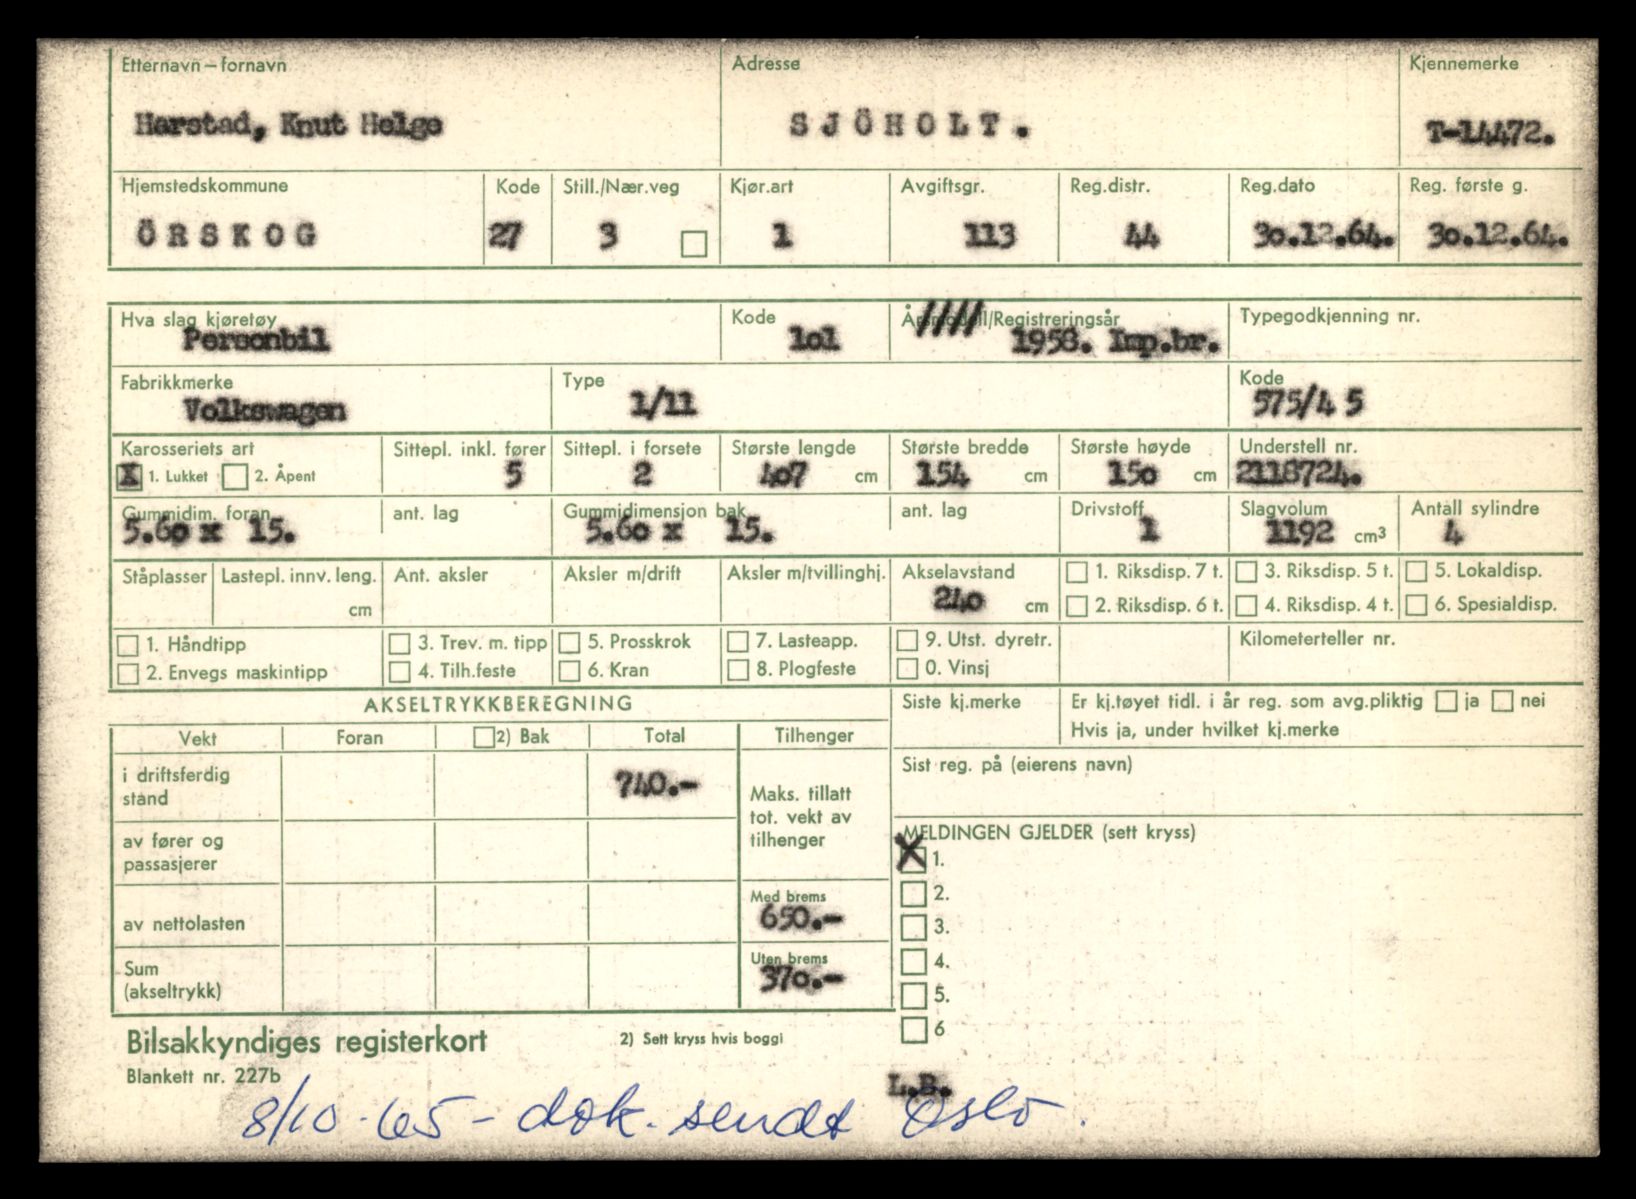 Etternavn – fornavn Adresse Kjennemerke
Harstad, Knut Helge SJÖHOLT. T-14472.
Hjemstedskommune Kode Still./Nær.veg Kjør.art Avgiftsgr. Reg.distr. Reg.dato Reg. første g.
ÖRSKOG 27 3 1 113 44 30.12.64. 30.12.64.
Hva slag kjøretøy Kode Årsmodell/Registreringsår Typegodkjenning nr.
Personbil 101 //// 1958. Imp.br.
Fabrikkmerke Type Kode
Volkswagen 1/11 575/4 5
Karosseriets art Sittepl. inkl. fører Sittepl. i forsete Største lengde Største bredde Største høyde Understell nr.
X 1. Lukket 2. Åpent 5 2 407 cm 154 cm 150 cm 2118724.
Gummidim. foran ant. lag Gummidimensjon bak ant. lag Drivstoff Slagvolum Antall sylindre
5.60 x 15. 5.60 x 15. 1 1192 cm³ 4
Ståplasser Lastepl. innv. leng. Ant. aksler Aksler m/drift Aksler m/tvillinghj. Akselavstand 1. Riksdisp. 7 t. 3. Riksdisp. 5 t. 5. Lokaldisp.
cm 240 cm 2. Riksdisp. 6 t. 4. Riksdisp. 4 t. 6. Spesialdisp.
1. Håndtipp 3. Trev. m. tipp 5. Prosskrok 7. Lasteapp. 9. Utst. dyretr. Kilometerteller nr.
2. Envegs maskintipp 4. Tilh.feste 6. Kran 8. Plogfeste 0. Vinsj
AKSELTRYKKBEREGNING Siste kj.merke Er kj.tøyet tidl. i år reg. som avg.pliktig ja nei
Hvis ja, under hvilket kj.merke
Vekt Foran 2) Bak Total Tilhenger
Sist reg. på (eierens navn)
i driftsferdig
stand 740.-
Maks. tillatt
tot. vekt av
tilhenger
av fører og
passasjerer
MELDINGEN GJELDER (sett kryss)
X 1.
2.
3.
4.
5.
6
Med brems
av nettolasten 650.-
Uten brems
Sum
(akseltrykk) 370.-
Bilsakkyndiges registerkort 2) Sett kryss hvis boggi
Blankett nr. 227b
L.B.
8/10-65 - dok. sendt Oslo.